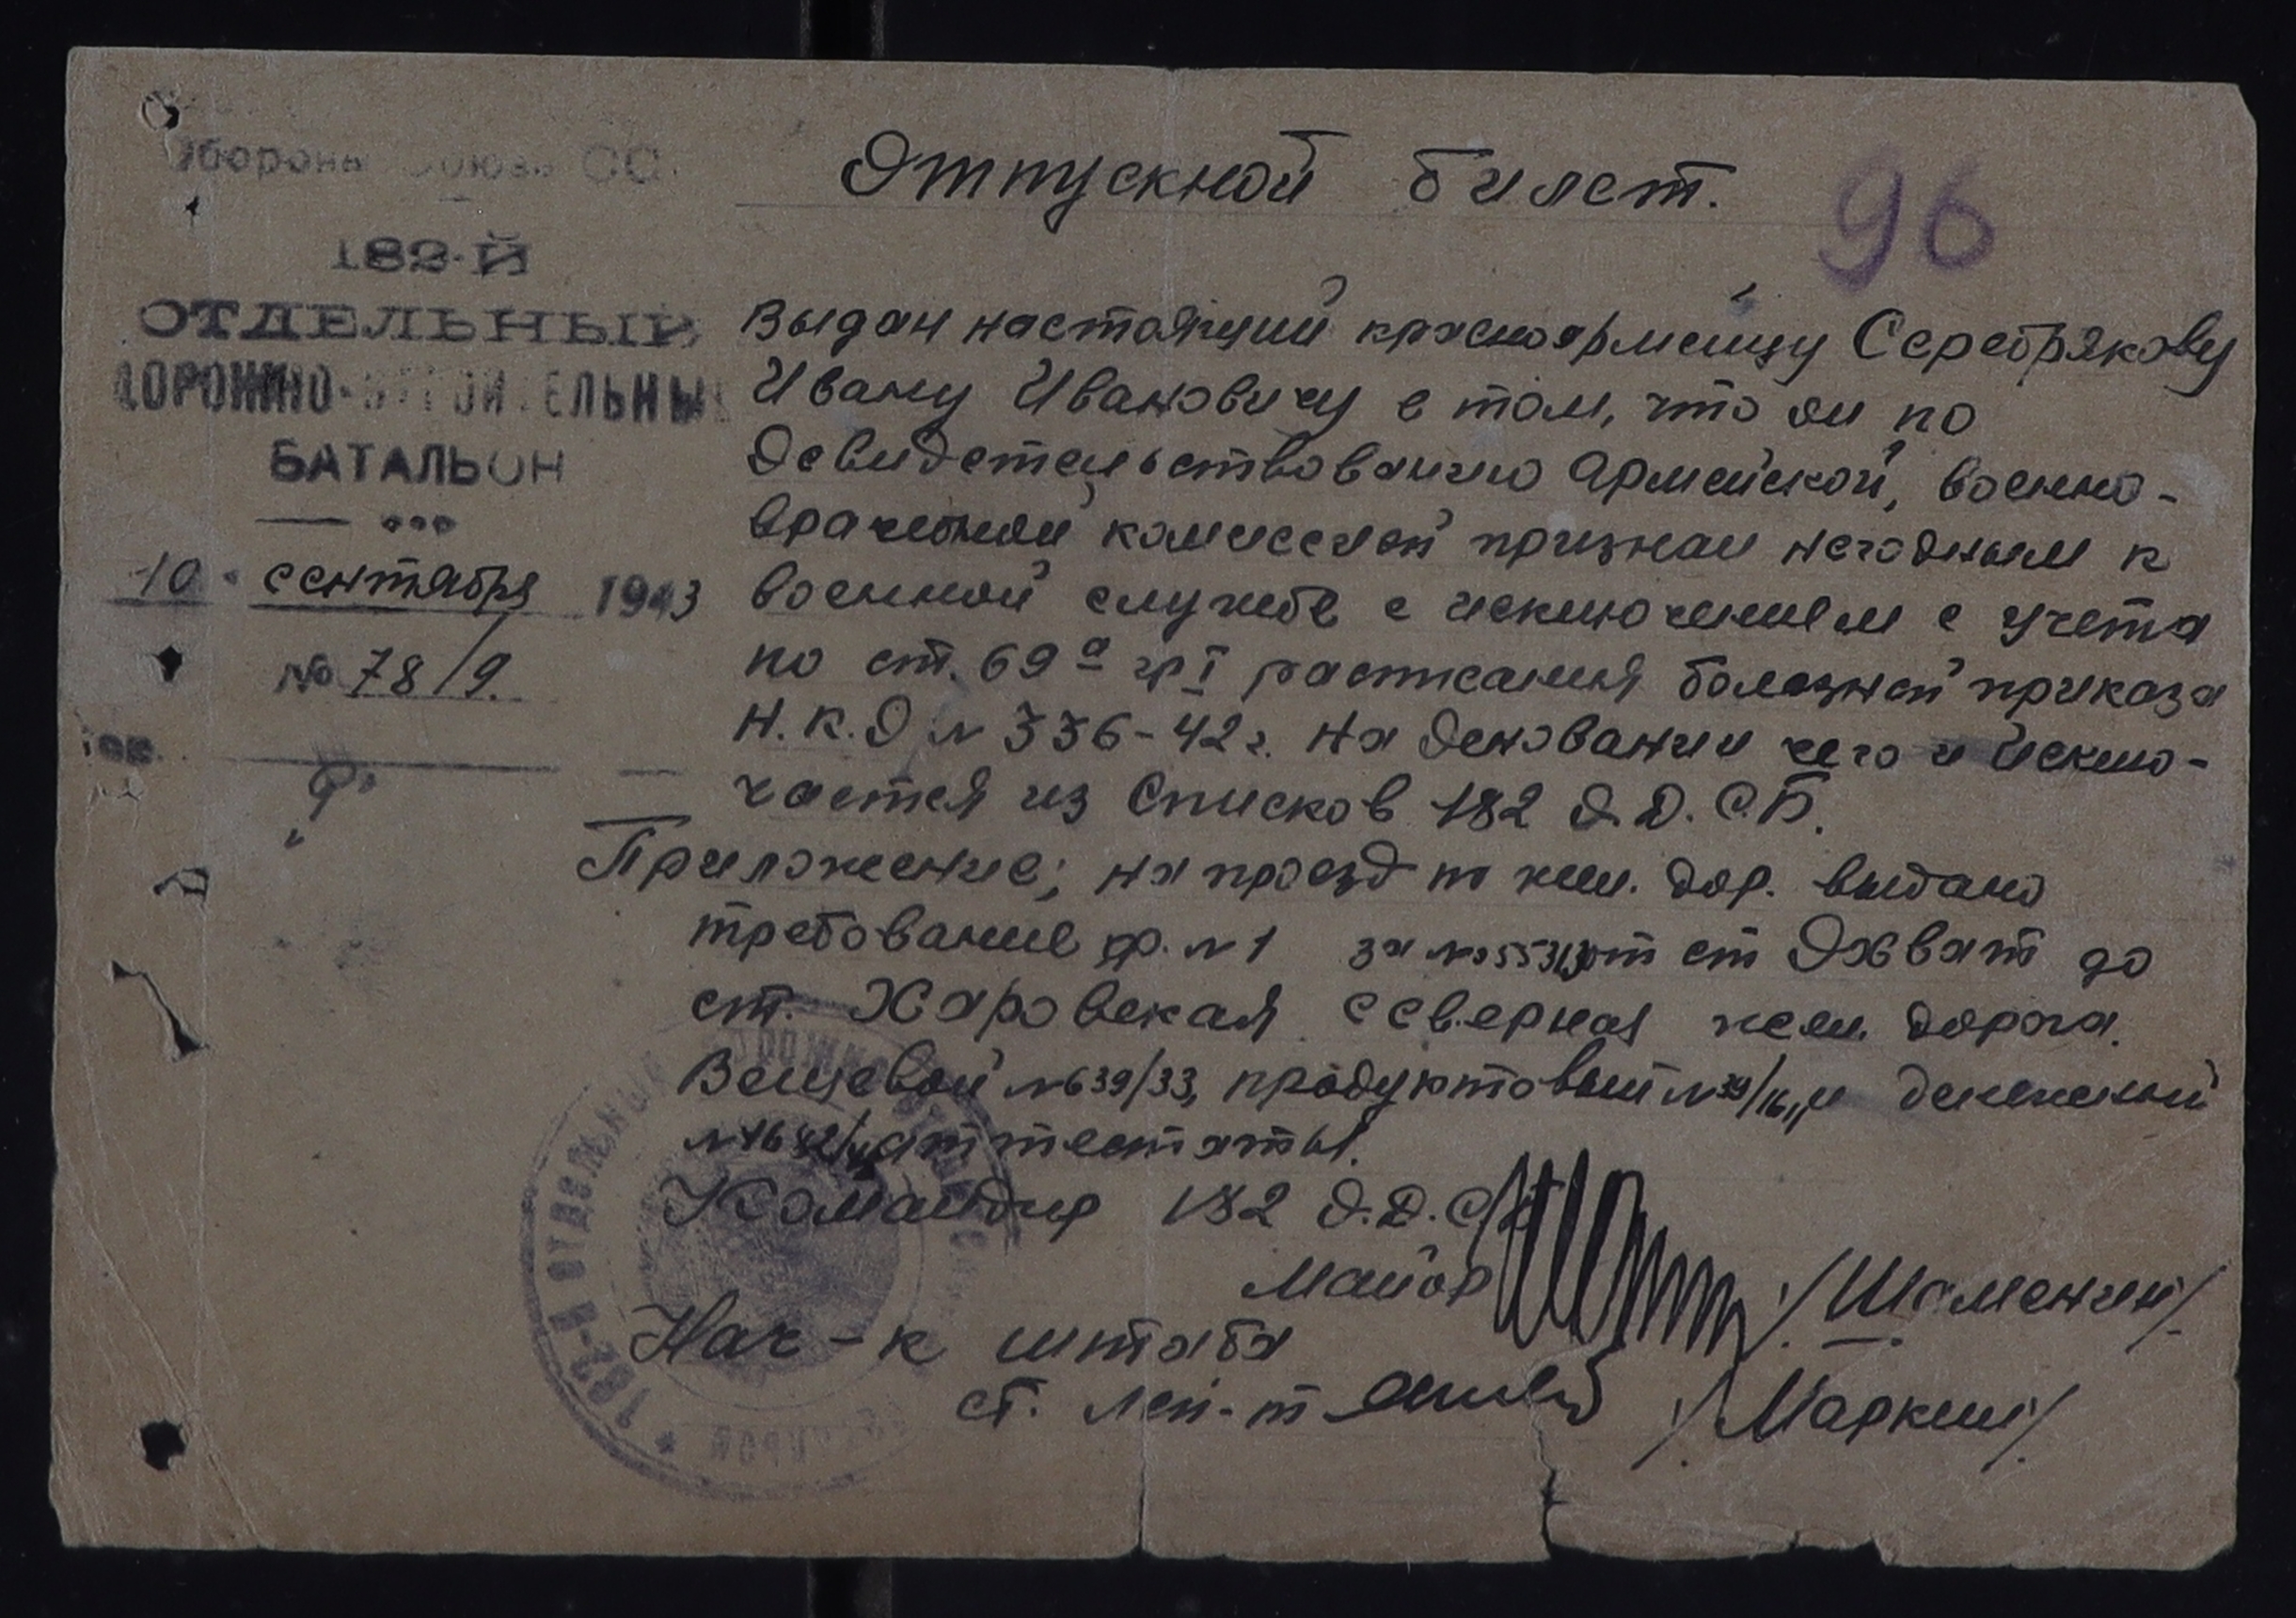 Обороны Союза СС
182-Й
ОТДЕЛЬНЫЙ
ДОРОЖНО-СТРОИТЕЛЬНЫ
БАТАЛЬОН
10 сентября 1943
№ 78/9.
Отпускной билет.
96
Выдан настоящий красноармейцу Серебрякову
Ивану Ивановичу в том, что он по
Освидетельствованию Армейской, военно-
врачебной комиссией признан негодным к
военной службе с исключением с учета
по ст. 69а гр I расписания болезней приказа
Н.К.О № 336-42г. На Основании чего и исклю-
чается из Списков 182 О.Д.С.Б.
Приложение; на проезд по жел. дор. выдано
требование ф. №1 за № от ст Охват до
ст. Харовская северная жел. дорога.
Вещевой №639/33, продуктовый №39/16, и денежный
аттестаты.
Командир 182 О.Д.С.Б
Майор /Шаменин/.
Нач-к штаба
ст. лей-т /Маркин/.
182-Й ОТДЕЛЬНЫЙ ДОРОЖНО-СТРОИТ